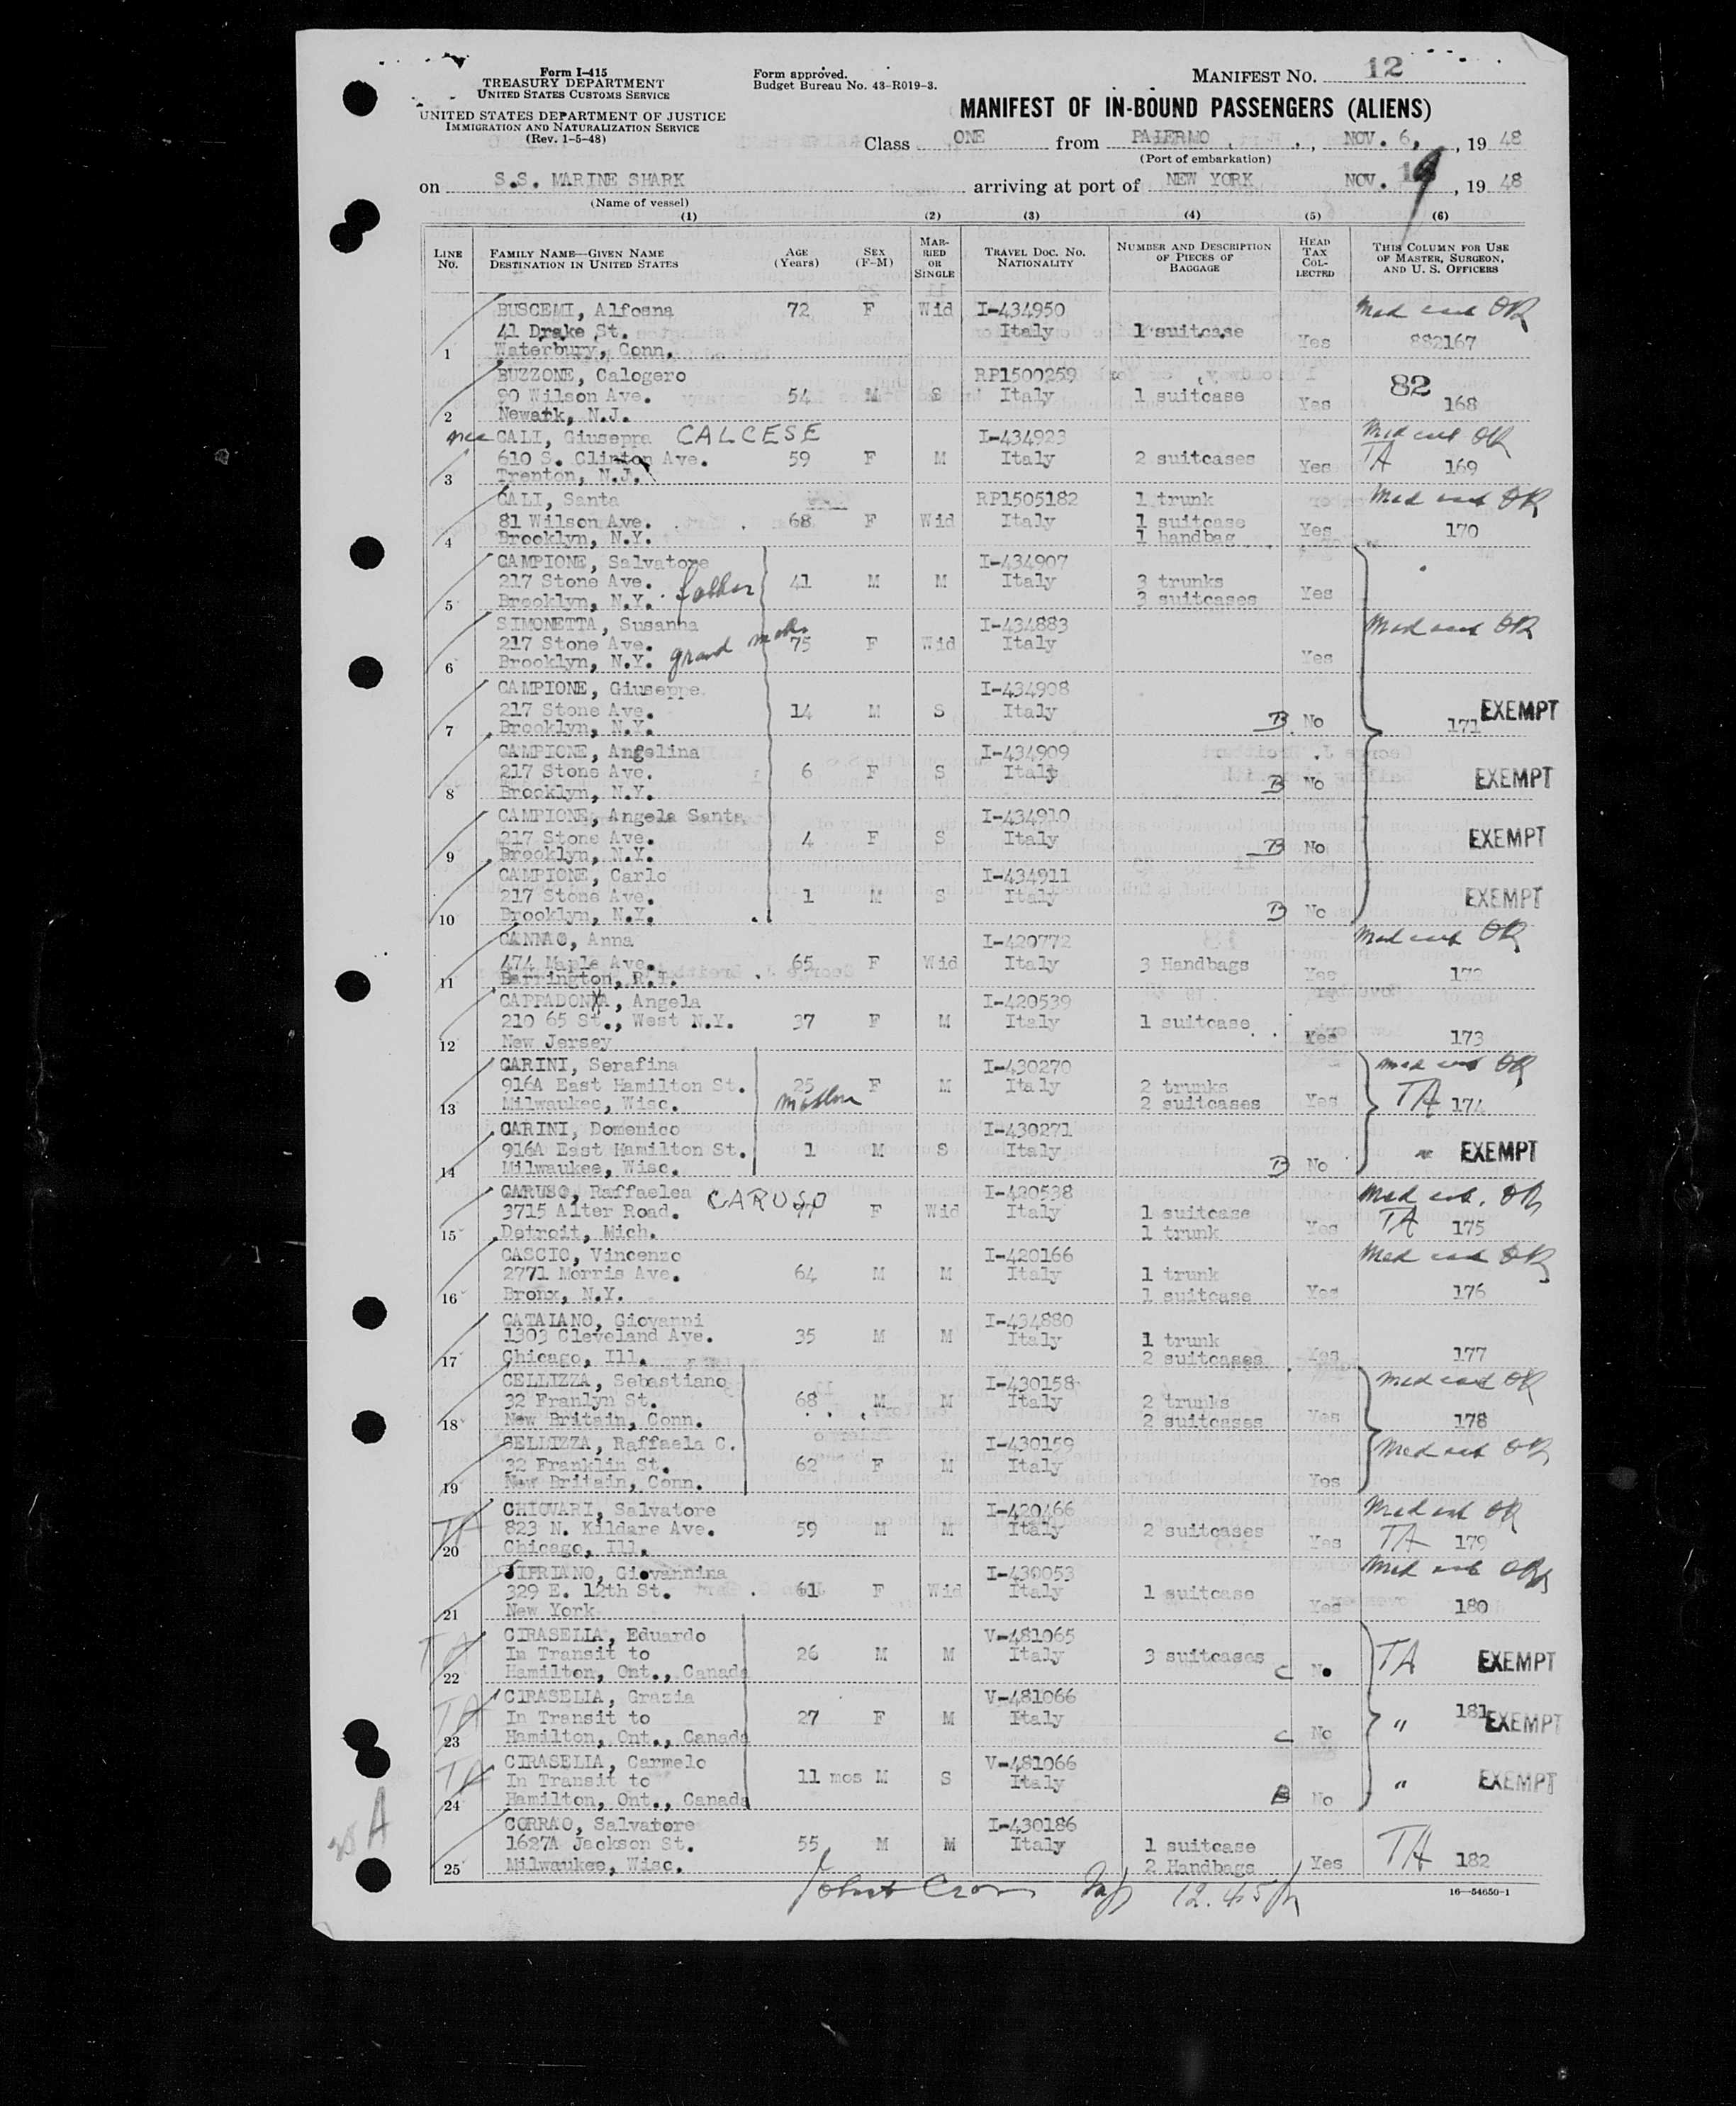 Form I-415
TREASURY DEPARTMENT
UNITED STATES CUSTOMS SERVICE
UNITED STATES DEPARTMENT OF JUSTICE
IMMIGRATION AND NATURALIZATION SERVICE
(Rev. 1-5-48)
Form approved.
Budget Bureau No. 43-R019-3.
MANIFEST NO. 12
MANIFEST OF IN-BOUND PASSENGERS (ALIENS)
Class ONE from PALERMO, NOV. 6, 1948
(Port of embarkation)
on S.S. MARINE SHARK arriving at port of NEW YORK NOV. 1948
(Name of vessel)
(1) (2) (3) (4) (5) (6)
LINE NO. FAMILY NAME—GIVEN NAME DESTINATION IN UNITED STATES AGE (Years) SEX (F-M) MARRIED OR SINGLE TRAVEL DOC. NO. NATIONALITY NUMBER AND DESCRIPTION OF PIECES OF BAGGAGE HEAD TAX COLLECTED THIS COLUMN FOR USE OF MASTER, SURGEON, AND U. S. OFFICERS
BUSCEMI, Alfosna 72 F Wid I-434950 Med cert OR
41 Drake St. Italy 1 suitcase Yes 882167
1 Waterbury, Conn.
BUZZONE, Calogero RP1500259 82
90 Wilson Ave. 54 M S Italy 1 suitcase Yes 168
2 Newark, N.J.
nee CALI, Giuseppa CALCESE I-434923 Med cert OR
610 S. Clinton Ave. 59 F M Italy 2 suitcases Yes TA 169
3 Trenton, N.J.
CALI, Santa RP1505182 1 trunk Med cert OR
81 Wilson Ave. 68 F Wid Italy 1 suitcase Yes 170
4 Brooklyn, N.Y. 1 handbag
CAMPIONE, Salvatore I-434907
217 Stone Ave. father 41 M M Italy 3 trunks Yes
5 Brooklyn, N.Y. 3 suitcases
SIMONETTA, Susanna I-434883 Med cert OR
217 Stone Ave. grand moth. 75 F Wid Italy Yes
6 Brooklyn, N.Y.
CAMPIONE, Giuseppe I-434908
217 Stone Ave. 14 M S Italy B No 171 EXEMPT
7 Brooklyn, N.Y.
CAMPIONE, Angelina I-434909
217 Stone Ave. 6 F S Italy B No EXEMPT
8 Brooklyn, N.Y.
CAMPIONE, Angela Santa I-434910
217 Stone Ave. 4 F S Italy B No EXEMPT
9 Brooklyn, N.Y.
CAMPIONE, Carlo I-434911
217 Stone Ave. 1 M S Italy B No EXEMPT
10 Brooklyn, N.Y.
CANNAO, Anna I-420772 Med cert OR
474 Maple Ave. 65 F Wid Italy 3 Handbags Yes 172
11 Barrington, R.I.
CAPPADONNA, Angela I-420539
210 65 St., West N.Y. 37 F M Italy 1 suitcase Yes 173
12 New Jersey
CARINI, Serafina I-430270 Med cert OR
916A East Hamilton St. 25 F M Italy 2 trunks Yes TA 174
13 Milwaukee, Wisc. Mother 2 suitcases
CARINI, Domenico I-430271
916A East Hamilton St. 1 M S Italy B No " EXEMPT
14 Milwaukee, Wisc.
CARUSO, Raffaelea CARUSO I-420538 Med cert. OR
3715 Alter Road. 77 F Wid Italy 1 suitcase Yes TA 175
15 Detroit, Mich. 1 trunk
CASCIO, Vincenzo I-420166 Med cert OR
2771 Morris Ave. 64 M M Italy 1 trunk Yes 176
16 Bronx, N.Y. 1 suitcase
CATALANO, Giovanni I-434880
1303 Cleveland Ave. 35 M M Italy 1 trunk Yes 177
17 Chicago, Ill. 2 suitcases
CELLIZZA, Sebastiano I-430158 Med cert OR
32 Franlyn St. 68 M M Italy 2 trunks Yes 178
18 New Britain, Conn. 2 suitcases
SELLIZZA, Raffaela C. I-430159 Med cert OR
32 Franklin St. 62 F M Italy Yes
19 New Britain, Conn.
CHIOVARI, Salvatore I-420466 Med cert OR
TA 823 N. Kildare Ave. 59 M M Italy 2 suitcases Yes TA 179
20 Chicago, Ill.
CIPRIANO, Giovannina I-430053 Med cert OR
329 E. 12th St. 61 F Wid Italy 1 suitcase Yes 180
21 New York
CIRASELLA, Eduardo V-481065
TA In Transit to 26 M M Italy 3 suitcases C No TA EXEMPT
22 Hamilton, Ont., Canada
CIRASELLA, Grazia V-481066
TA In Transit to 27 F M Italy C No " 181 EXEMPT
23 Hamilton, Ont., Canada
CIRASELLA, Carmelo V-481066
TA In Transit to 11 mos M S Italy B No " EXEMPT
24 Hamilton, Ont., Canada
CORRAO, Salvatore I-430186
1627A Jackson St. 55 M M Italy 1 suitcase Yes TA 182
25 Milwaukee, Wisc. 2 Handbags
16—54650-1
A
12.45